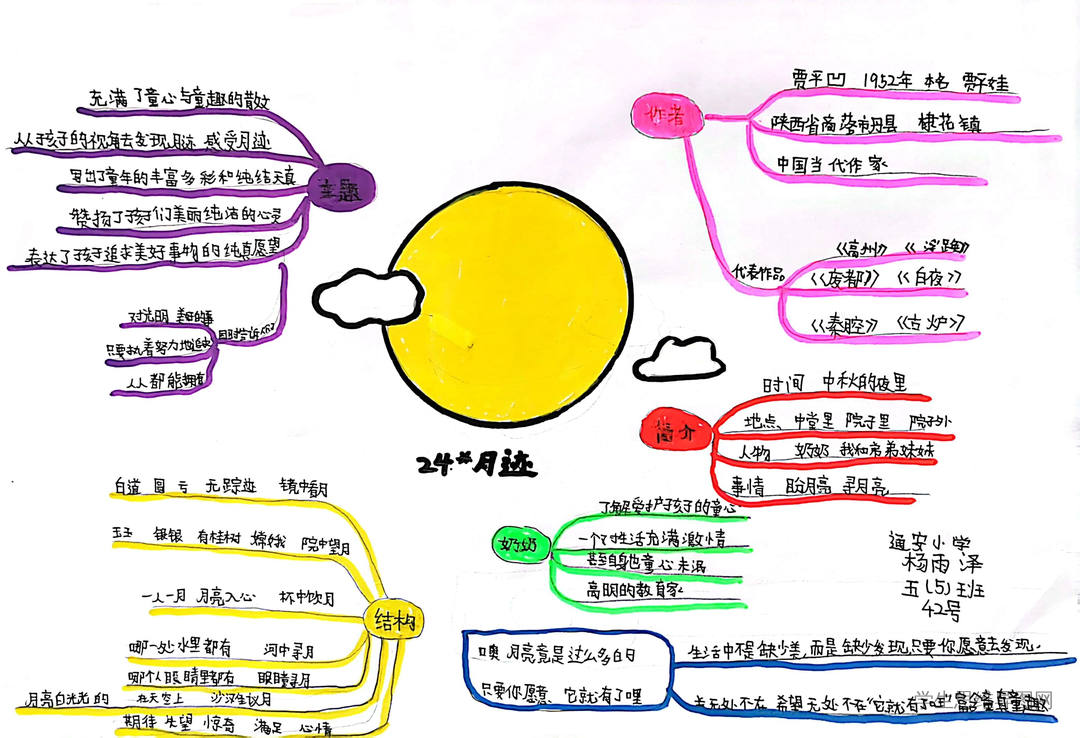 主题
充满了童心与童趣的散文
从孩子的视角去发现月迹 感受月迹
写出了童年的丰富多彩和纯结天真
赞扬了孩子们美丽纯洁的心灵
表达了孩子追求美好事物的纯真愿望
同时告诉人们
对光明 美好的事
只要执着努力地追求
人人都能拥有
作者
贾平凹 1952年 本名 贾平娃
陕西省商洛市丹县 棣花镇
中国当代作家
代表作品
《商州》 《浮躁》
《废都》 《白夜》
《秦腔》 《古炉》
24*月迹
简介
时间 中秋的夜里
地点、中堂里 院子里 院子外
人物 奶奶 我和弟弟妹妹
事情 盼月亮 寻月亮
奶奶
了解爱护孩子的童心
一个对生活充满激情
甚至自己童心未泯
高明的教育家
通安小学
杨雨泽
五(5)班
42号
结构
白道 圆 亏 无踪迹 镜中看月
玉玉 银银 有桂树 嫦娥 院中望月
一人一月 月亮入心 杯中饮月
哪一处水里都有 河中寻月
哪个人眼睛里都有 眼瞳寻月
月亮白光光的 在天空上 沙滩生议月
期待 失望 惊奇 满足 心情
噢 月亮竟是这么多的
只要你愿意、它就有了哩
生活中不是缺少美,而是缺少发现,只要你愿意去发现.
美无处不在 希望无处不在"它就有了哩"